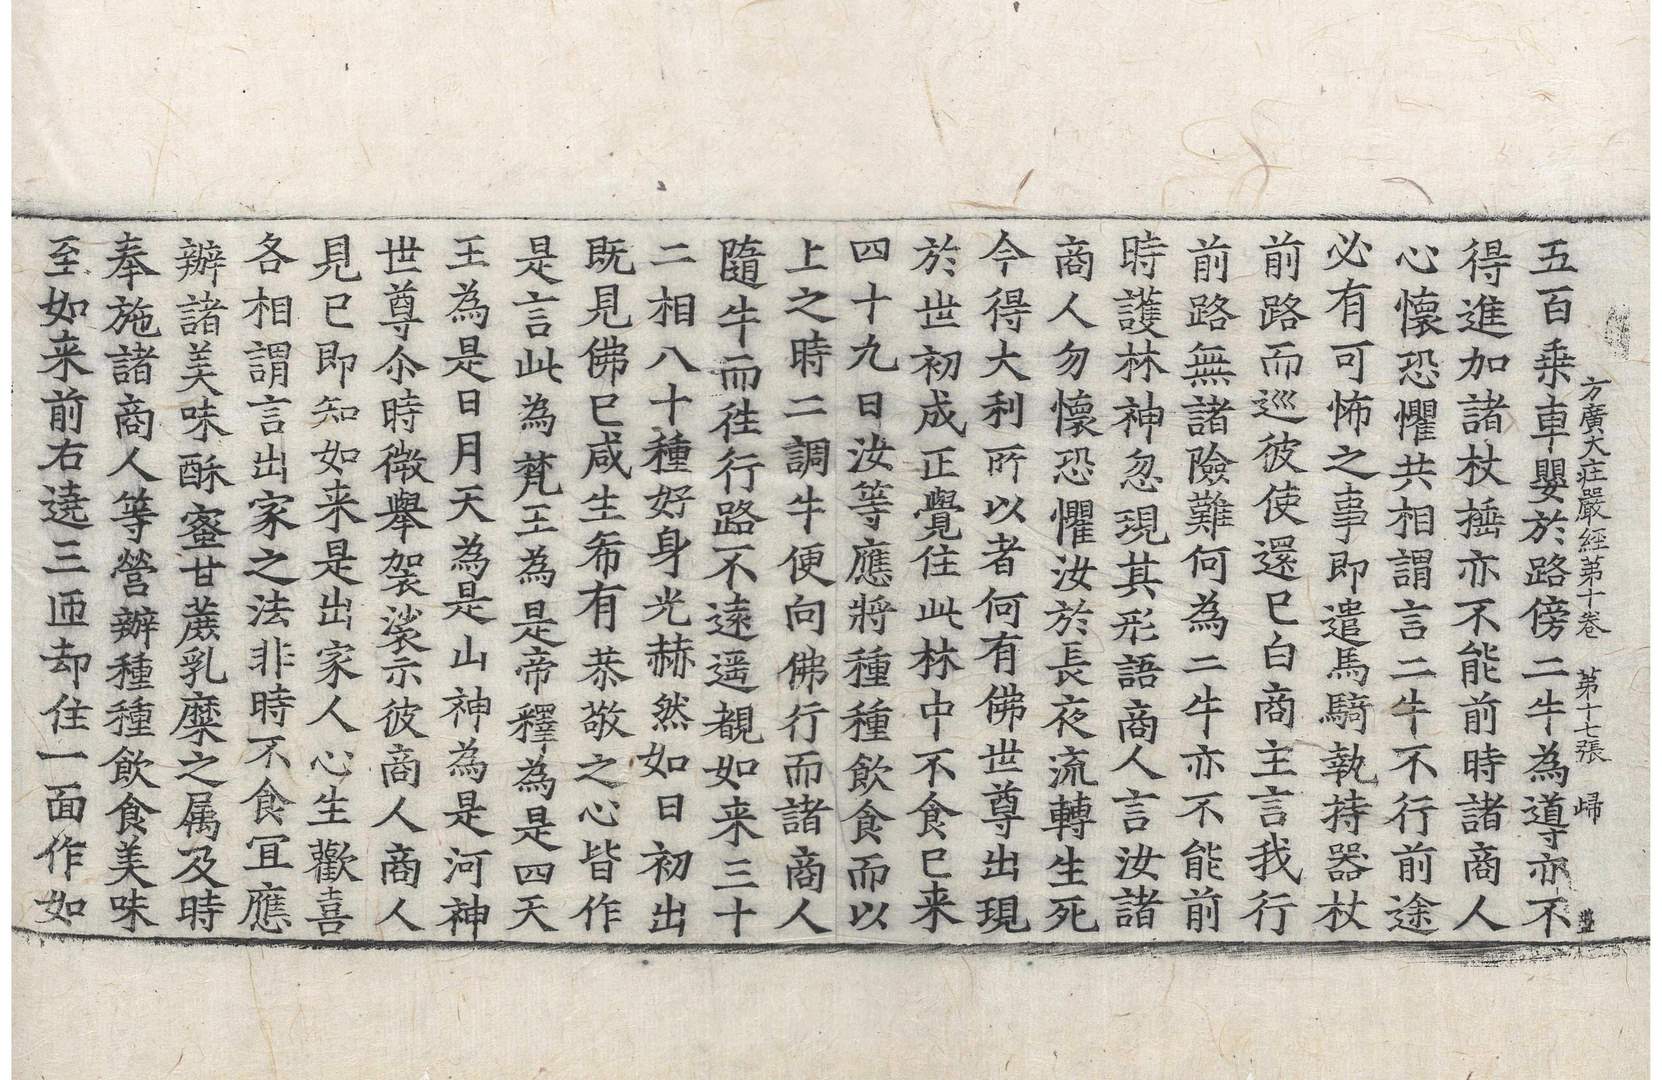 方廣大庄嚴經第十卷 第十七張 㱕
五百乗車嬰於路傍二牛為導亦不
得進加諸杖捶亦不能前時諸商人
心懷恐懼共相謂言二牛不行前途
必有可怖之事即遣馬騎執持器杖
前路而巡彼使還已白商主言我行
前路無諸險難何為二牛亦不能前
時護林神忽現其形語商人言汝諸
商人勿懷恐懼汝於長夜流轉生死
今得大利所以者何有佛世尊出現
於世初成正覺住此林中不食已来
四十九日汝等應將種種飲食而以
上之時二調牛便向佛行而諸商人
隨牛而徃行路不遠遥覩如来三十
二相八十種好身光赫然如日初出
既見佛已咸生希有恭敬之心皆作
是言此為梵王為是帝釋為是四天
王為是日月天為是山神為是河神
世尊尒時微舉袈裟示彼商人商人
見已即知如来是出家人心生歡喜
各相謂言出家之法非時不食冝應
辦諸美味酥蜜甘蔗乳糜之属及時
奉施諸商人等營辦種種飲食美味
至如来前右遶三匝却住一面作如